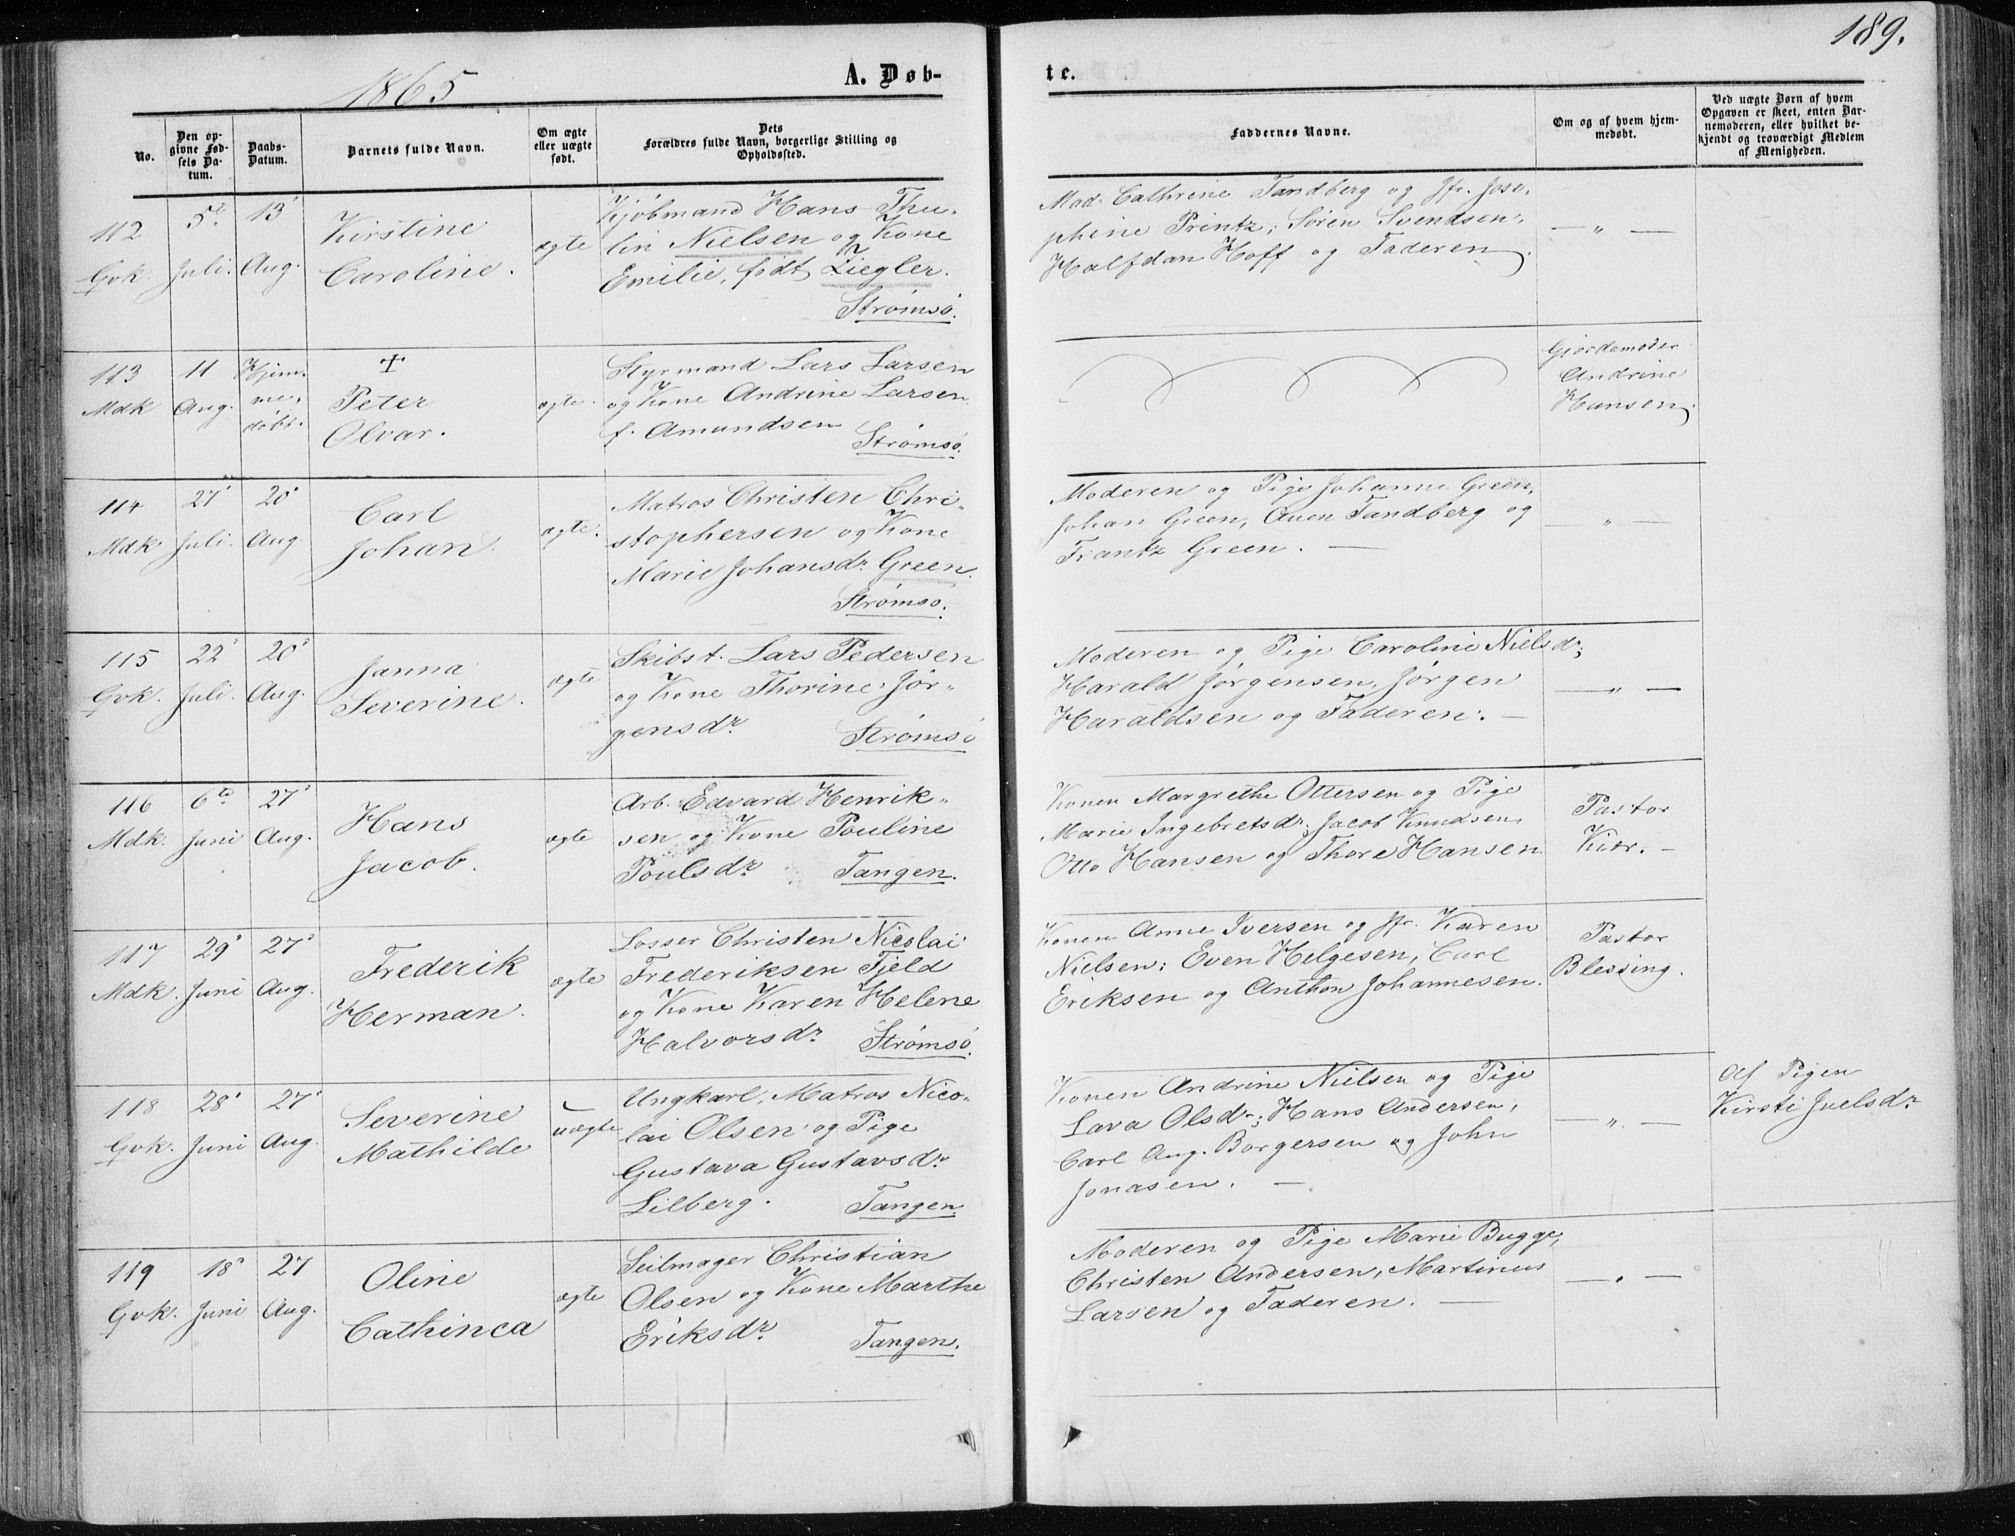 189.
1865
A. Døb-
te.
No.
Den op-
givne Fød-
sels Da-
tum.
Daabs-
Datum.
Barnets fulde Navn.
Om ægte
eller uægte
født.
Dets
Forældres fulde Navn, borgerlige Stilling og
Opholdssted.
Faddernes Navne.
Om og af hvem hjem-
medøbt.
Ved uægte Børn af hvem
Opgaven er skeet, enten Bar-
nemoderen, eller hvilket be-
kjendt og troværdigt Medlem
af Menigheden.
112
Gvk.
5te
Juli.
13'
Aug.
Kirstine
Caroline.
ægte
Kjøbmand Hans Thu-
lin Nielsen og Kone
Emilie, født Ziegler.
Strømsø.
Mad. Cathrine Tandberg og Jfr. Jose-
phine Printz; Søren Svendsen,
Halfdan Hoff og Faderen.
— " —
113
Mdk
11
Aug.
Hjem-
me-
døbt.
+
Peter
Olvar.
ægte.
Styrmand Lars Larsen
og Kone Andrine Larsen
f. Amundsen
Strømsø.
Gjordemoder
Andrine
Hansen.
114
Mdk.
27'
Juli.
20'
Aug
Carl
Johan.
ægte.
Matros Christen Chri-
stophersen og Kone
Marie Johansdr Green.
Strømsø.
Moderen og Pige Johanne Green,
Johan Green, Auen Tandberg og
Frantz Green. —
— " —
115
Gvk.
22'
Juli.
20'
Aug.
Janna
Severine.
ægte
Skibst. Lars Pedersen
og Kone Thorine Jør-
gensdr.
Strømsø
Moderen og Pige Caroline Nielsdr;
Harald Jørgensen, Jørgen
Haraldsen og Faderen. —
— " —
116
Mdk.
6te
Juni
27'
Aug.
Hans
Jacob.
ægte
Arb. Edvard Henrik-
sen og Kone Pouline
Poulsdr
Tangen.
Konen Margrethe Ottersen og Pige
Marie Ingebretsdr; Jacob Knudsen,
Otto Hansen og Thore Hansen.
Pastor
Kiær. —
117
Mdk.
29'
Juni
27'
Aug.
Frederik
Herman.
ægte
Losser Christen Nicolai
Frederiksen Fjeld
og Kone Karen Helene
Halvorsdr
Strømsø.
Konen Anne Iversen og Jfr. Karen
Nielsen; Even Helgesen, Carl
Eriksen og Anthon Johannesen.
Pastor
Blessing.
118
Gvk.
28'
Juni
27'
Aug.
Severine
Mathilde
uægte
Ungkarl, Matros Nico-
lai Olsen og Pige
Gustava Gustavsdr
Lilberg.
Tangen.
Konen Andrine Nielsen og Pige
Lava Olsdr; Hans Andersen,
Carl Aug. Borgersen og John
Jonasen. —
— " —
Af Pigen
Kirsti Juelsdr
119
Gvk.
18'
Juni
27
Aug.
Oline
Cathinca
ægte
Seilmager Christian
Olsen og Kone Marthe
Eriksdr.
Tangen.
Moderen og Pige Marie Bugge,
Christen Andersen, Martinus
Larsen og Faderen. —
— " —